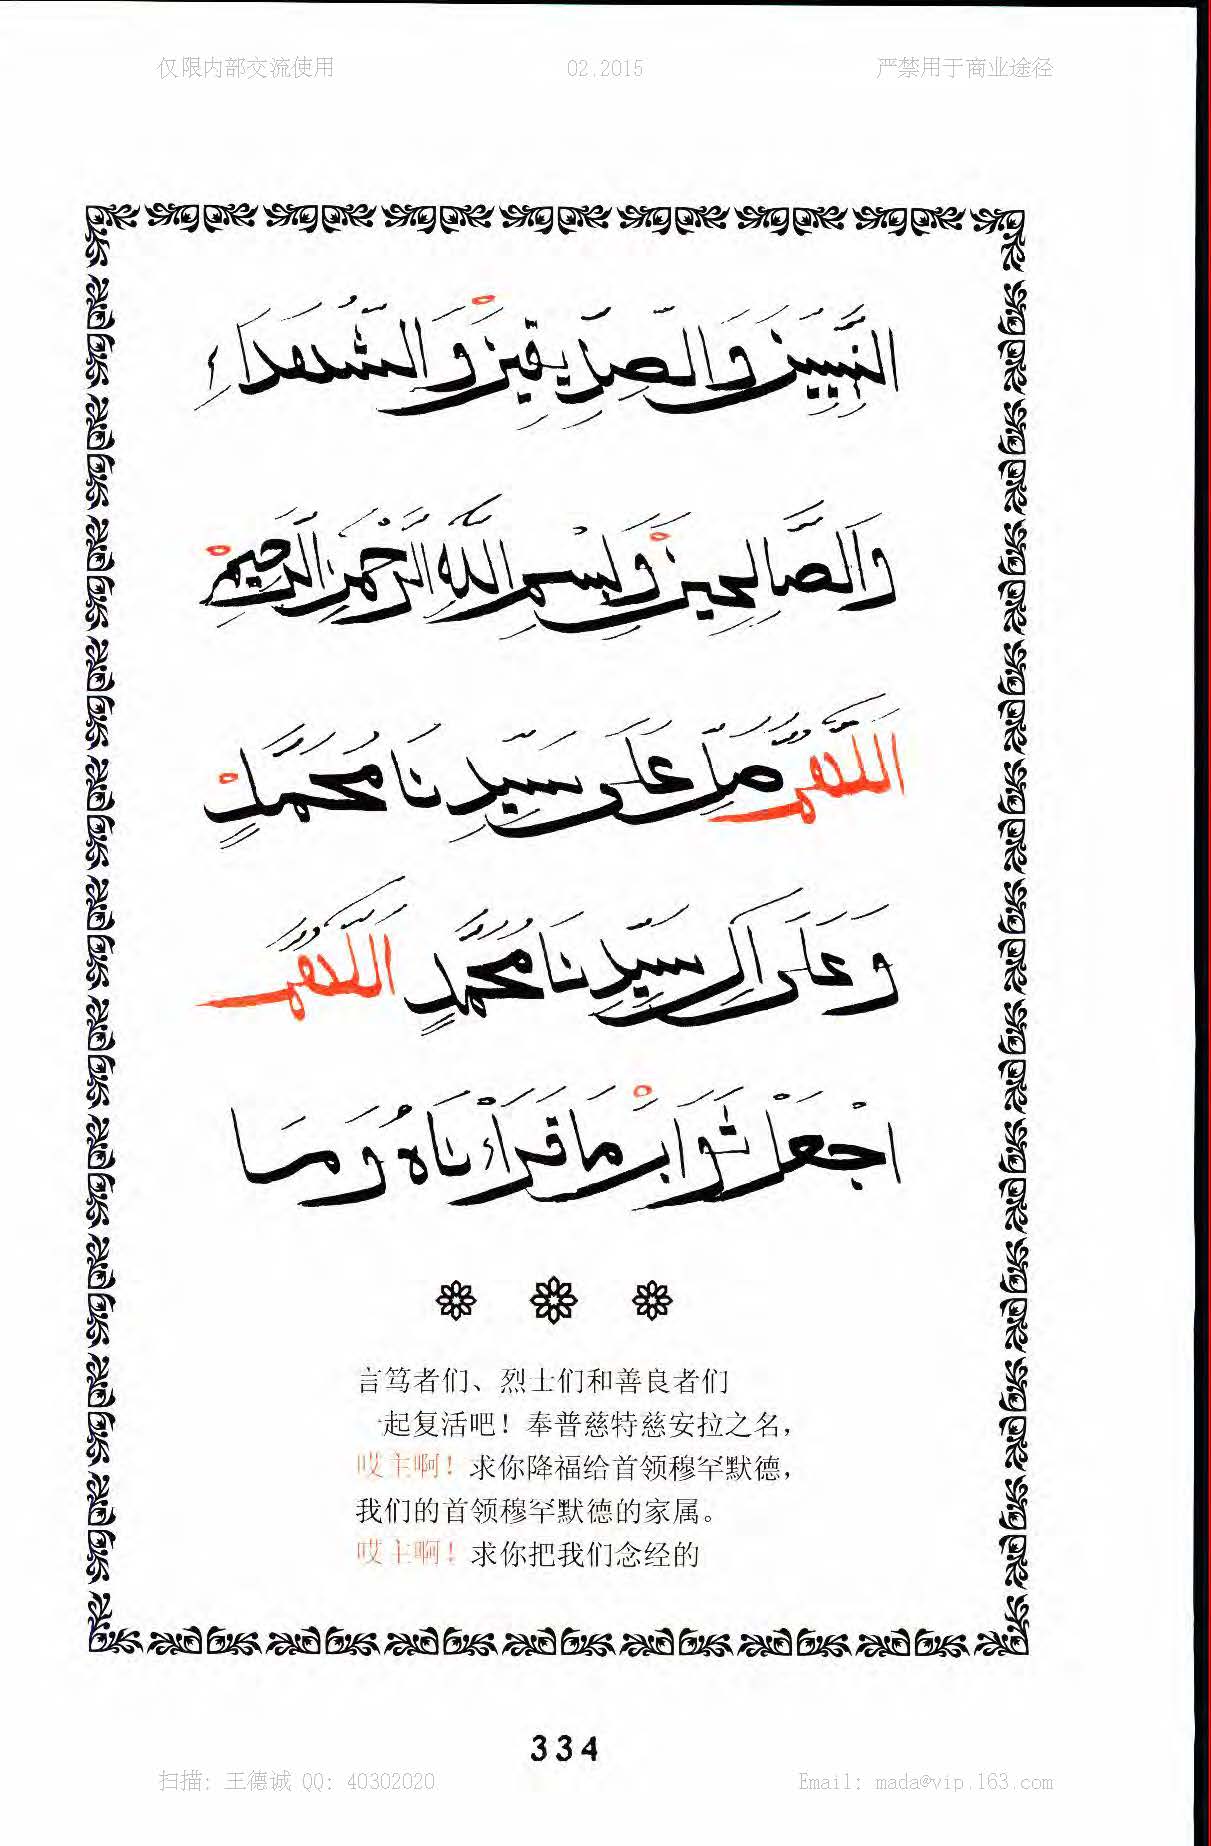 仅限内部交流使用 02.2015 严禁用于商业途径
النَّبِيِّينَ وَالصِّدِّيقِينَ وَالشُّهَدَاءِ
وَالصَّالِحِينَ وَبِسْمِ اللَّهِ الرَّحْمَنِ الرَّحِيمِ
اللَّهُمَّ صَلِّ عَلَى سَيِّدِنَا مُحَمَّدٍ
وَعَلَى آلِ سَيِّدِنَا مُحَمَّدٍ اللَّهُمَّ
اجْعَلْ ثَوَابَ مَا قَرَأْنَاهُ وَمَا
言笃者们、烈士们和善良者们
一起复活吧！奉普慈特慈安拉之名，
哎主啊！求你降福给首领穆罕默德，
我们的首领穆罕默德的家属。
哎主啊！求你把我们念经的
334
扫描: 王德诚 QQ: 40302020 Email: mada@vip.163.com